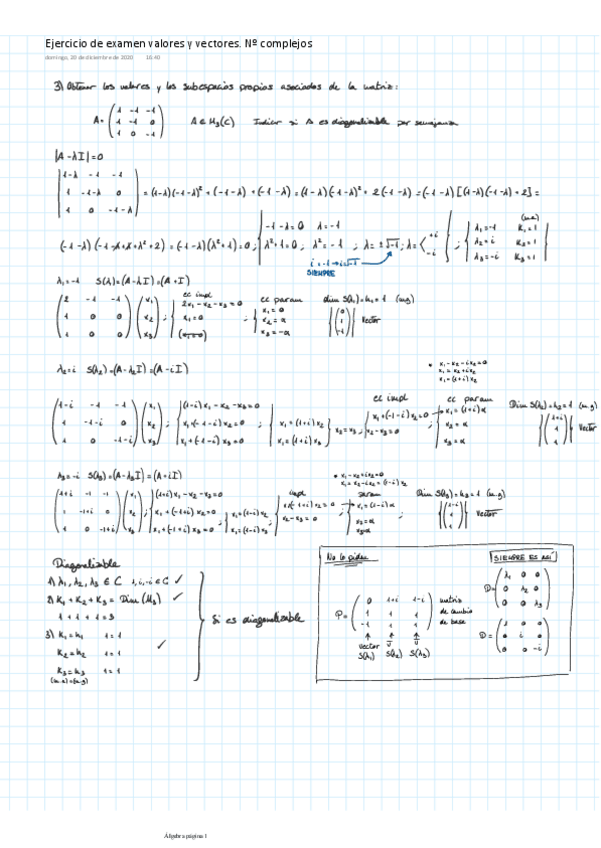 Ejercicio de examen valores y vectores. Nº complejos
domingo, 20 de diciembre de 2020 16:40
3) Obtener los valores y los subespacios propios asociados de la matriz:
A= (1 -1 -1
1 -1 0
1 0 -1) A∈M₃(C) Indicar si A es diagonalizable por semejanza
|A-λI|=0
|1-λ -1 -1
1 -1-λ 0
1 0 -1-λ| = (1-λ)(-1-λ)² + (-1-λ) + (-1-λ) = (1-λ)(-1-λ)² + 2(-1-λ) = (-1-λ)[(1-λ)(-1-λ)+2] =
(-1-λ)(-1-λ+λ+λ²+2) = (-1-λ)(λ²+1)=0; -1-λ=0 λ=-1
λ²+1=0; λ²=-1; λ=±√-1; λ=< +i -i ;
i=-1→i=√-1
SIEMPRE
(m.a)
λ₁=-1 K₁=1
λ₂=i K₂=1
λ₃=-i K₃=1
λ₁=-1 S(λ₁)=(A-λI)=(A+I)
(2 -1 -1
1 0 0
1 0 0) (x₁
x₂
x₃) ;
ec impl
2x₁-x₂-x₃=0
x₁=0
(x₁=0) ;
ec param
x₁=0
x₂=α
x₃=-α
dim S(λ₁)=h₁=1 (m.g)
(0
1
-1) Vector
λ₂=i S(λ₂)=(A-λ₂I)=(A-iI)
• x₁-x₂-ix₂=0
x₁=x₂+ix₂
x₁=(1+i)x₂
(1-i -1 -1
1 -1-i 0
1 0 -1-i) (x₁
x₂
x₃) ;
(1-i)x₁-x₂-x₃=0
x₁+(-1-i)x₂=0
x₁+(-1-i)x₃=0 ;
x₁=(1+i)x₂
x₁=(1+i)x₃
x₂=x₃ ;
ec impl
x₁+(-1-i)x₂=0
x₂-x₃=0
ec param
x₁=(1+i)α
x₂=α
x₃=α
Dim S(λ₂)=h₂=1 (m.g)
(1+i
1
1) Vector
λ₃=-i S(λ₃)=(A-λ₃I)=(A+iI)
• x₁-x₂+ix₂=0
x₁=x₂-ix₂=(1-i)x₂
(1+i -1 -1
1 -1+i 0
1 0 -1+i) (x₁
x₂
x₃) ;
(1+i)x₁-x₂-x₃=0
x₁+(-1+i)x₂=0
x₁+(-1+i)x₃=0 ;
x₁=(1-i)x₂
x₁=(1-i)x₃ ;
impl
x₁+(-1+i)x₂=0
x₂-x₃=0
param
x₁=(1-i)α
x₂=α
x₃=α
Dim S(λ₃)=h₃=1 (m.g)
(1-i
1
1) Vector
Diagonalizable
1) λ₁, λ₂, λ₃ ∈ C 1, i, -i ∈ C ✓
2) K₁+K₂+K₃ = Dim (M₃) ✓
1+1+1=3
3) K₁=h₁ 1=1
K₂=h₂ 1=1 ✓
K₃=h₃ 1=1
(m.a)=(m.g)
Si es diagonalizable
No lo piden
P= (0 1+i 1-i
1 1 1
-1 1 1) matriz de cambio de base
vector
S(λ₁) S(λ₂) S(λ₃)
SIEMPRE ES ASÍ
D= (λ₁ 0 0
0 λ₂ 0
0 0 λ₃)
D= (-1 0 0
0 i 0
0 0 -i)
Álgebra página 1